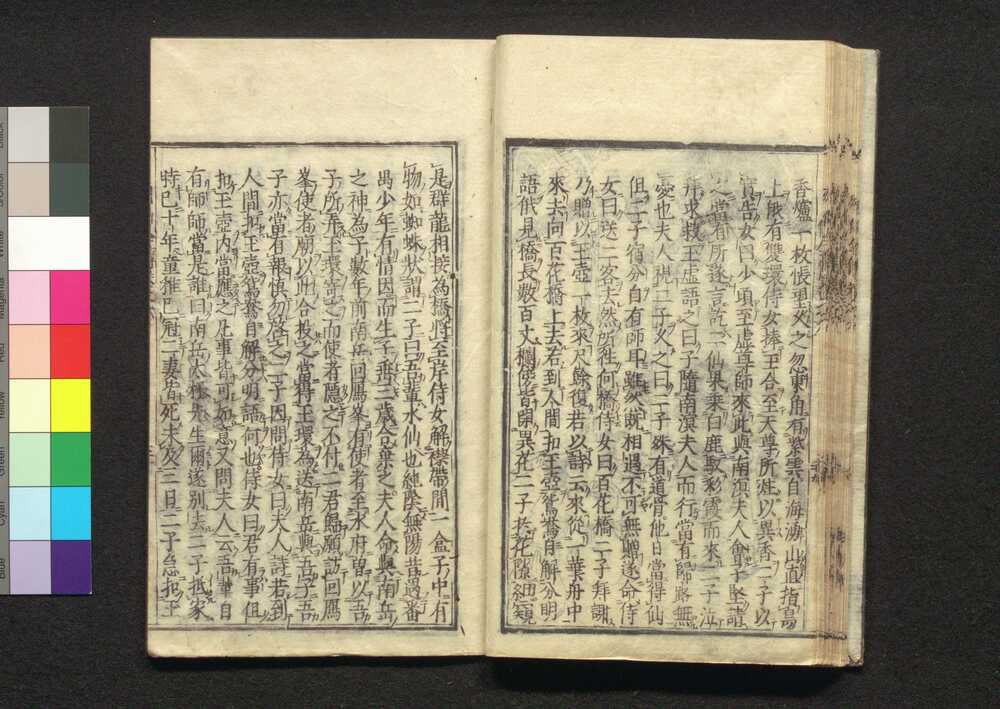 香爐一枚悵望久之忽東角有紫雲自海湧出直指島
上俄有雙鬟侍女捧玉合至天尊所炷以異香二子以
實告女曰少頃玉虛尊師來此與南溟夫人會子堅請
之當有所遂言訖一仙果乘白鹿馭彩霞而來二子泣
拜求救玉虛語之曰子隨南溟夫人而行當有歸路無
憂也夫人視二子久之曰二子殊有道骨他日當得仙
但二子宿分自有師耳雖然既相遇不可無贈遂命侍
女曰送二客去然所往何橋侍女曰百花橋二子拜謝
乃贈以玉壺一枚來尺餘復君以詩云來從一葉舟中
來去向百花橋上去若到人間扣玉壺鴛鴦自解分明
語俄見橋長數百丈欄檻皆間異花二子於花隙細窺
見群龍相接為橋將至岸侍女解襟帶間一盒子中有
物如蜘蛛狀謂二子曰吾輩水仙也純陰無陽昔遇番
禺少年有情因而生子齊三歲合棄之夫人命與南岳
之神為子數年前南岳回鴈峯有使者至水府曽以吾
子所弄玉環寄之而使者隱之不付二君歸願訪回鴈
峯使者廟以此合投之當得玉環為送南岳與吾子吾
子亦當有報慎勿啓之二子因問侍女曰夫人詩若到
人間扣玉壺鴛鴦自解分明語何也侍女曰君有事但
扣玉壺內當應之凡事皆可如意又問夫人云吾輩自
有師師當是誰曰南岳太極先生爾遂別去二子抵家
時已十年童稚已冠二妻皆死未及三日二子急扣玉